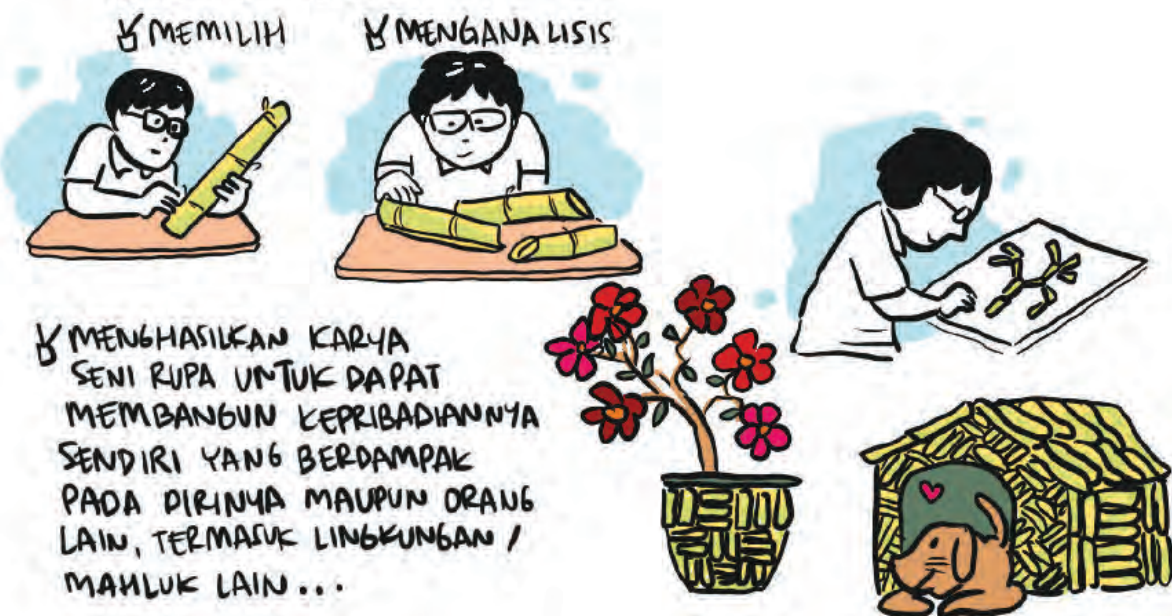 MEMILIH
MENGANALISIS
MENGHASILKAN KARYA
SENI RUPA UNTUK DAPAT
MEMBANGUN KEPRIBADIANNYA
SENDIRI YANG BERDAMPAK
PADA DIRINYA MAUPUN ORANG
LAIN, TERMASUK LINGKUNGAN /
MAHLUK LAIN...